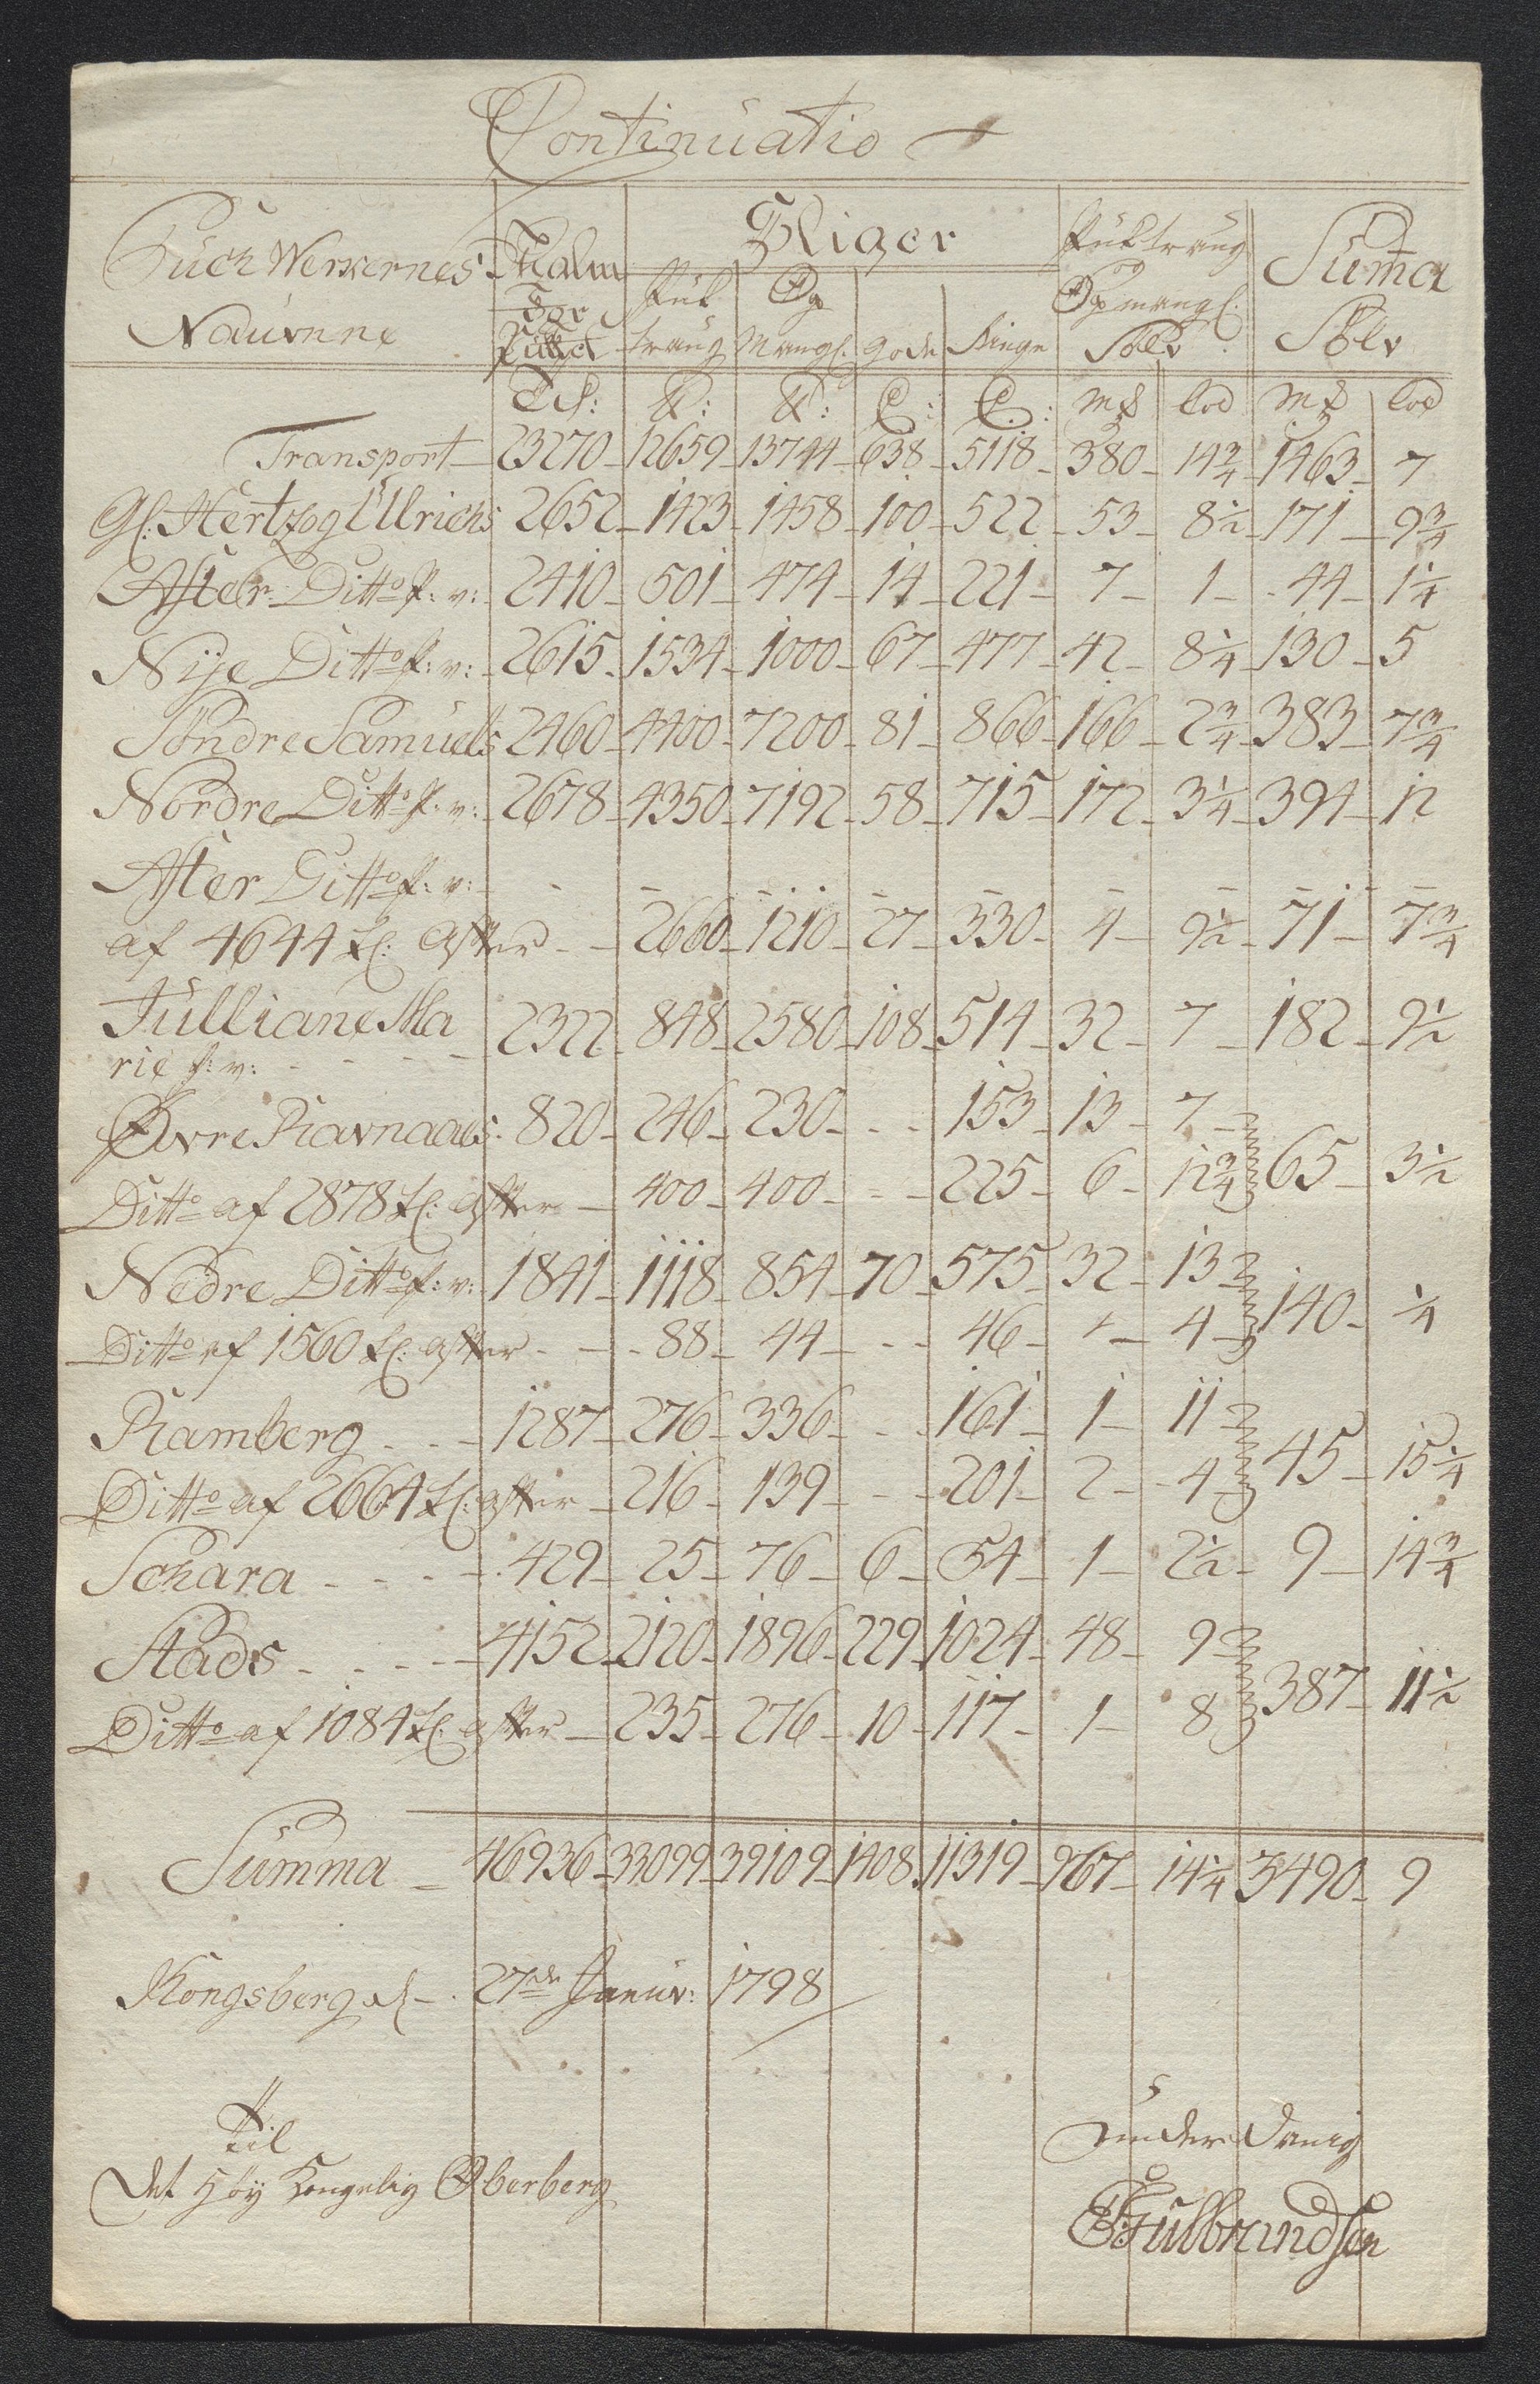 Continuatio
Puch Werkernes Malm Sliger Puktraug Suma
for Puk Op og
Navnne Pukket traug Mangl. gode Ringe Opmangl. Sölv Sölv
Tl: ℔: ℔: C: C: mk lod mk lod
Transport 23270 12659 13744 638 5118 380 14 3/4 1463 7
Gl: Hertzog Ullrichs 2652 1423 1458 100 522 53 8 1/2 171 9 3/4
After Ditto p: v: 2410 501 474 14 221 7 1 44 1 1/4
Nÿe Ditto p: v: 2615 1534 1000 67 477 42 8 1/4 130 5
Söndre Samuels 2460 4400 7200 81 866 166 2 3/4 383 7 3/4
Nordre Ditto p: v: 2678 4350 7192 58 715 172 3 1/4 394 12
After Ditto p: v: - - - - - - - - -
af 4644 tl: After - - 2660 1210 27 330 4 9 1/2 71 7 3/4
Julliane Ma 2322 848 2580 108 514 32 7 182 9 1/2
rie p: v: - - - -
Øvre Ravnaaes 820 246 230 - - 153 13 7
65 3 1/2
Ditto af 2878 tl: After - 400 400 - - 225 6 12 3/4
Nedre Ditto p: v: 1841 1118 854 70 575 32 13
140 1/4
Ditto af 1560 tl: After - - 88 44 - - 46 - 4
Ramberg - - - 1287 276 336 - - 161 1 11
45 15 1/4
Ditto af 2664 tl: After - 216 139 - - 201 2 4
Schara - - - - 429 25 76 6 54 1 2 1/2 9 14 3/4
Stads - - - - 4152 2120 1896 229 1024 48 9
387 11 1/2
Ditto af 1084 tl: After - 235 276 10 117 1 8
Summa - 46936 33099 39109 1408 11319 967 14 1/4 3490 9
Kongsberg d. 27de Januv: 1798
Til
Det Höy Kongelig Oberberg
underdanig
Gulbrandsen